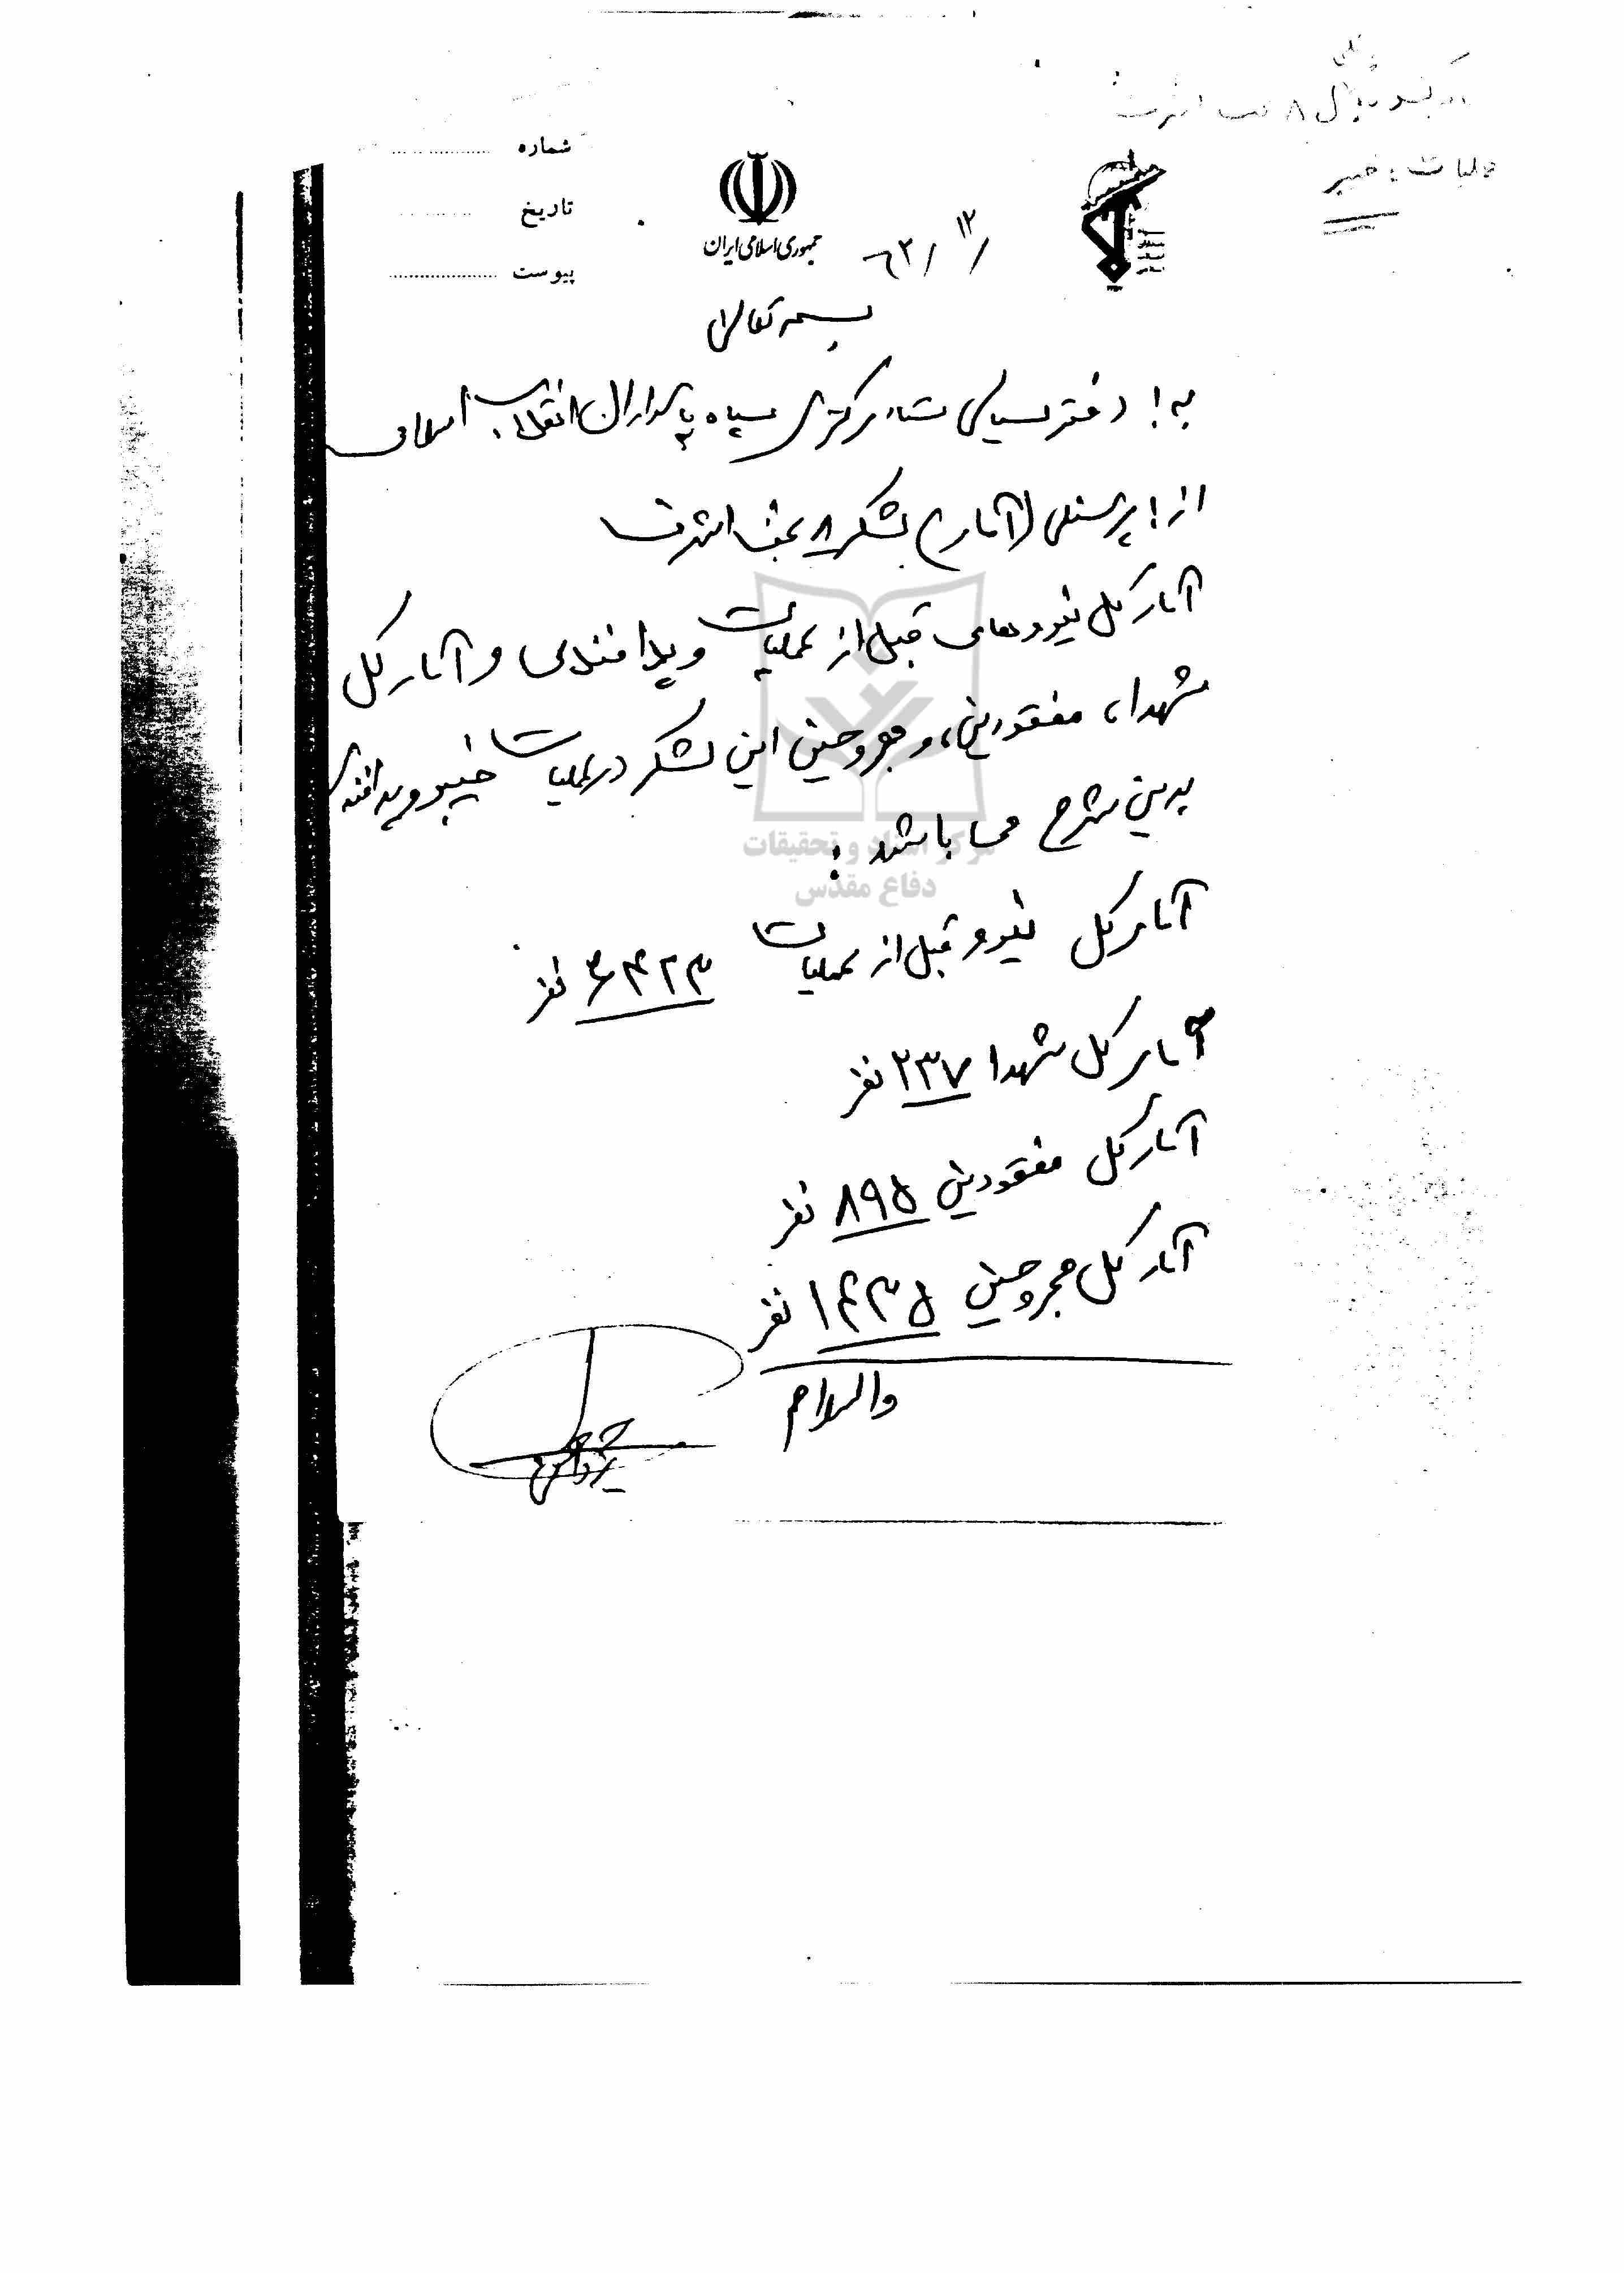 عملیات : خیبر
شماره
تاریخ
پیوست
جمهوری اسلامی ایران
۶۲/ ۱۲/
بسمه تعالی
به : دفتر سیاسی ستاد مرکزی سپاه پاسداران انقلاب اسلامی
از : پرسنلی (آمار) لشکر ۸ نجف اشرف
آمار کل نیروهای قبل از عملیات و پدافندی و آمار کل
شهدا، مفقودین، و مجروحین این لشکر در عملیات خیبر و پدافندی
بدین شرح میباشد :
مرکز اسناد و تحقیقات
دفاع مقدس
آمار کل نیرو قبل از عملیات ۶۴۲۳ نفر
آمار کل شهدا ۲۳۷ نفر
آمار کل مفقودین ۸۹۵ نفر
آمار کل مجروحین ۱۴۳۵ نفر
والسلام